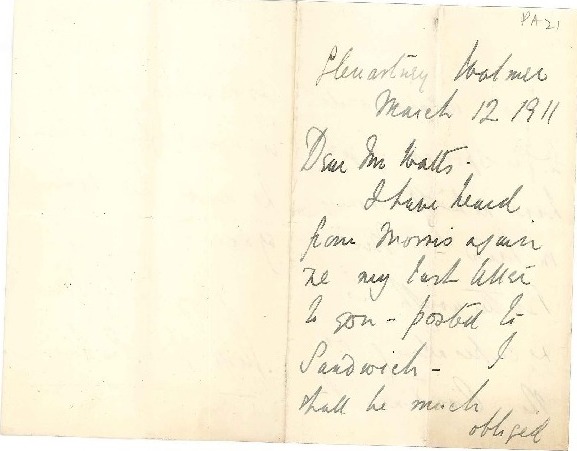 PA 21
Glenartney Walmer
March 12 1911
Dear Mr Watts.
I have heard
from Morris again
re my last letter
to you - posted to
Sandwich - I
shall be much
obliged